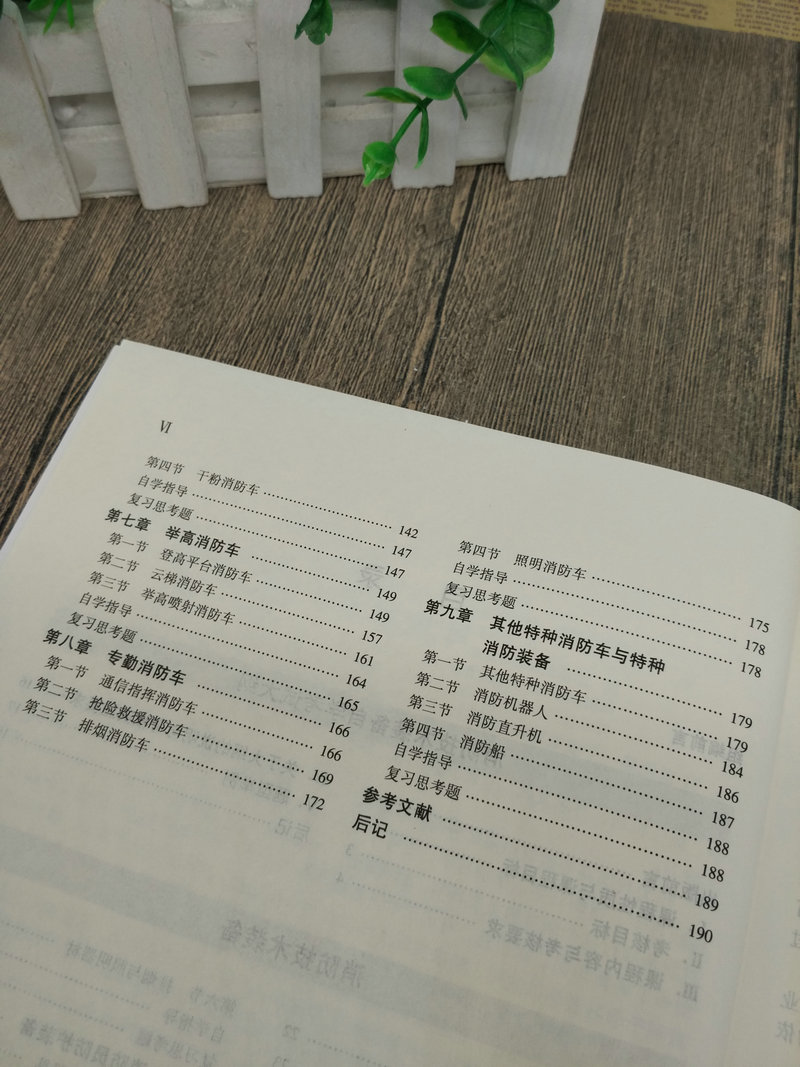 VI
第四节 干粉消防车 …… 142
自学指导 …… 147
复习思考题 …… 147
第七章 举高消防车 …… 149
第一节 登高平台消防车 …… 149
第二节 云梯消防车 …… 157
第三节 举高喷射消防车 …… 161
自学指导 …… 164
复习思考题 …… 165
第八章 专勤消防车 …… 166
第一节 通信指挥消防车 …… 166
第二节 抢险救援消防车 …… 169
第三节 排烟消防车 …… 172
第四节 照明消防车 …… 175
自学指导 …… 178
复习思考题 …… 178
第九章 其他特种消防车与特种
消防装备 …… 179
第一节 其他特种消防车 …… 179
第二节 消防机器人 …… 184
第三节 消防直升机 …… 186
第四节 消防船 …… 187
自学指导 …… 188
复习思考题 …… 188
参考文献 …… 189
后记 …… 190